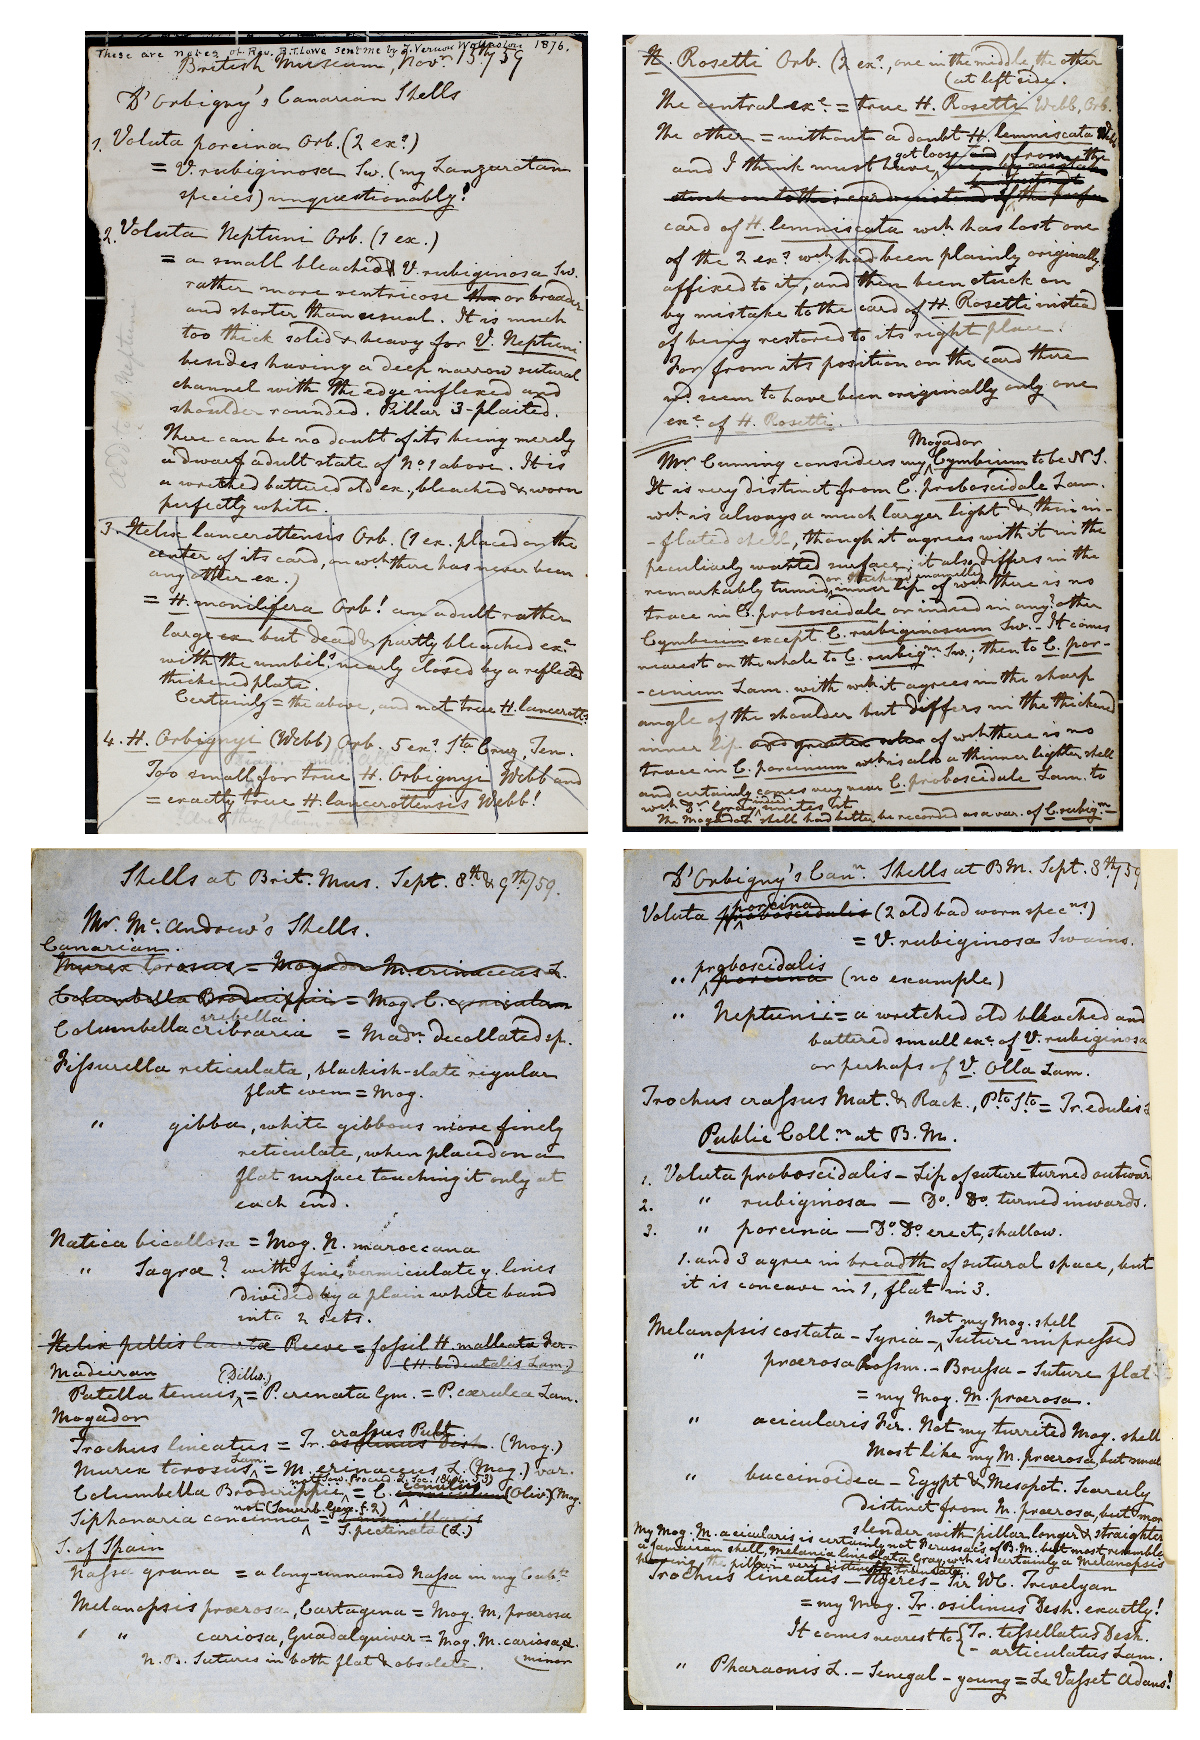 These are notes of Rev. R.T. Lowe sent me by J. Vernon Wollaston 1876.
British Museum, Nov.r 15th/59
D'Orbigny's Canarian Shells
1. Voluta porcina Orb. (2 ex.s)
= V. rubiginosa Sw. (my Lanzarotan
species) unquestionably!
2. Voluta Neptuni Orb. (1 ex.)
= a small bleached V. rubiginosa Sw.
rather more ventricose than or broader
and shorter than usual. It is much
too thick solid & heavy for V. Neptuni
besides having a deep narrow sutural
channel with the edge inflexed and
shoulder rounded. Pillar 3-plaited.
There can be no doubt of its being merely
a dwarf adult state of No 1 above. It is
a wretched battered old ex., bleached & worn
perfectly white.
add to V. Neptuni
3. Helix lancerottensis Orb. (1 ex. placed on the
center of its card, on wch there has never been
any other ex.)
= H. monilifera Orb! an adult rather
large ex but dead & partly bleached ex.e
with the umbil.s nearly closed by a reflected
thickened plate.
Certainly = the above, and not true H. lancerotts
4. H. Orbignyi (Webb) Orb. 5 ex.s Sta Cruz Ten.
Too small for true H. Orbignyi Webb and
= exactly true H. lancerottensis Webb!
H. Rosetti Orb. (2 ex.s, one in the middle, the other
(at left side.
The central ex.e = true H. Rosetti Webb, Orb.
The other = without a doubt H. lemniscata Webb
and I think must have got loose and from the
stuck on to this card instead of the
card of H. lemniscata wch has lost one
of the 2 ex.s wch had been plainly originally
affixed to it, and then been stuck on
by mistake to the card of H. Rosetti instead
of being restored to its right place.
For from its position on the card there
wd. seem to have been originally only one
ex.e of H. Rosetti.
Mr Cuming considers my Mogador Cymbium to be N.S.
It is very distinct from C. proboscidale Lam.
wch is always a much larger light & thin in-
-flated shell, though it agrees with it in the
peculiarly wanted surface; it also differs in the
remarkably tumid, or thickened enamelled inner lip of wch there is no
trace in C. proboscidale or indeed in any other
Cymbium except C. rubiginosum Sw. - It comes
nearest on the whole to C. rubig.m Sw.; then to C. por-
-cinum Lam. with wch it agrees in the sharp
angle of the shoulder but differs in the thickened
inner lip and greater of wch there is no
trace in C. porcinum wch is also a thinner lighter shell
and certainly comes very near C. proboscidale Lam. to
wch Dr. Gray indeed unites it.
The Mogador shell had better be recorded as a var. of C. rubig.m -
Shells at Brit. Mus. Sept. 8th & 9th/59.
Mr. McAndrew's Shells.
Canarian.
Murex torosus = Mogador M. erinaceus L.
Columbella Broderippii = Mog. C. corniculum
Columbella cribraria irebella = Madn decollated sp.
Fissurella reticulata, blackish-slate regular
flat even = Mog.
" gibba, white gibbous more finely
reticulate, when placed on a
flat surface touching it only at
each end.
Natica bicallosa = Mog. N. maroccana
" Sagræ? with fine vermiculate y. lines
divided by a plain white band
into 2 sets.
Helix pellis lacerta Reeve = fossil H. malleata Fer.
(H. bidentalis Lam.)
Madeiran
Patella tenuis (Dillw.) = P. crenata Gm. = P. cærulea Lam.
Mogador
Trochus lineatus = Tr. osilinus Desh. crassus Pult. (Mog.)
Murex torosus Lam. = M. erinaceus L. (Mog.) var.
Columbella Broderippii not Sow. Proced. Z. Soc. 1841. 53) = C. corniculum (Oliv.) Mog.
Siphonaria concinna not (Sowerb. Gen. f. 2) =
S. pectinata (L.)
S. of Spain
Nassa grana = a long-unnamed Nassa in my Cabt.
Melanopsis præorsa, Cartagena = Mog. M. præorsa
" " cariosa, Guadalquiver = Mog. M. cariosa, &
N.B. Sutures in both flat & obsolete. (minor
D'Orbigny's Can.n Shells at B.M. Sept. 8th/59
Voluta proboscidalis porcina (2 old bad worn specns)
= V. rubiginosa Swains.
" porcina proboscidalis (no example)
" Neptuni = a wretched old bleached and
battered small ex.e of V. rubiginosa
or perhaps of V. Olla Lam.
Trochus crassus Mat. & Rack., Pto Sto = Tr. edulis L
Public Coll.n at B.M.
1. Voluta proboscidalis - Lip of suture turned outward
2. " rubiginosa - Do. Do. turned inwards.
3. " porcina - Do. Do. erect, shallow.
1. and 3 agree in breadth of sutural space, but
it is concave in 1, flat in 3.
Melanopsis costata - Syria - Not my Mog. shell Suture impressed
" præorsa Rossm. - Brussa - Suture flat
= my Mog. M. præorsa.
" acicularis Fer. Not my turreted Mog. shell
Most like my M. præorsa, but small
" buccinoidea - Egypt & Mesopot. Scarcely
distinct from M. præorsa, but more
slender with pillar longer & straighter
My Mog. M. acicularis is certainly not Ferussac's of B.M. but most resembles
a Jamaican shell, Melania lineolata Gray, wch is certainly a Melanopsis
having the pillar very distinctly truncate.
Trochus lineatus - Algeres - Sir W.C. Trevelyan
= my Mog. Tr. osilinus Desh. exactly!
It comes nearest to { Tr. tessellatus Desh.
- articulatus Lam.
" Pharaonis L. - Senegal - young = Le Vasset Adans!